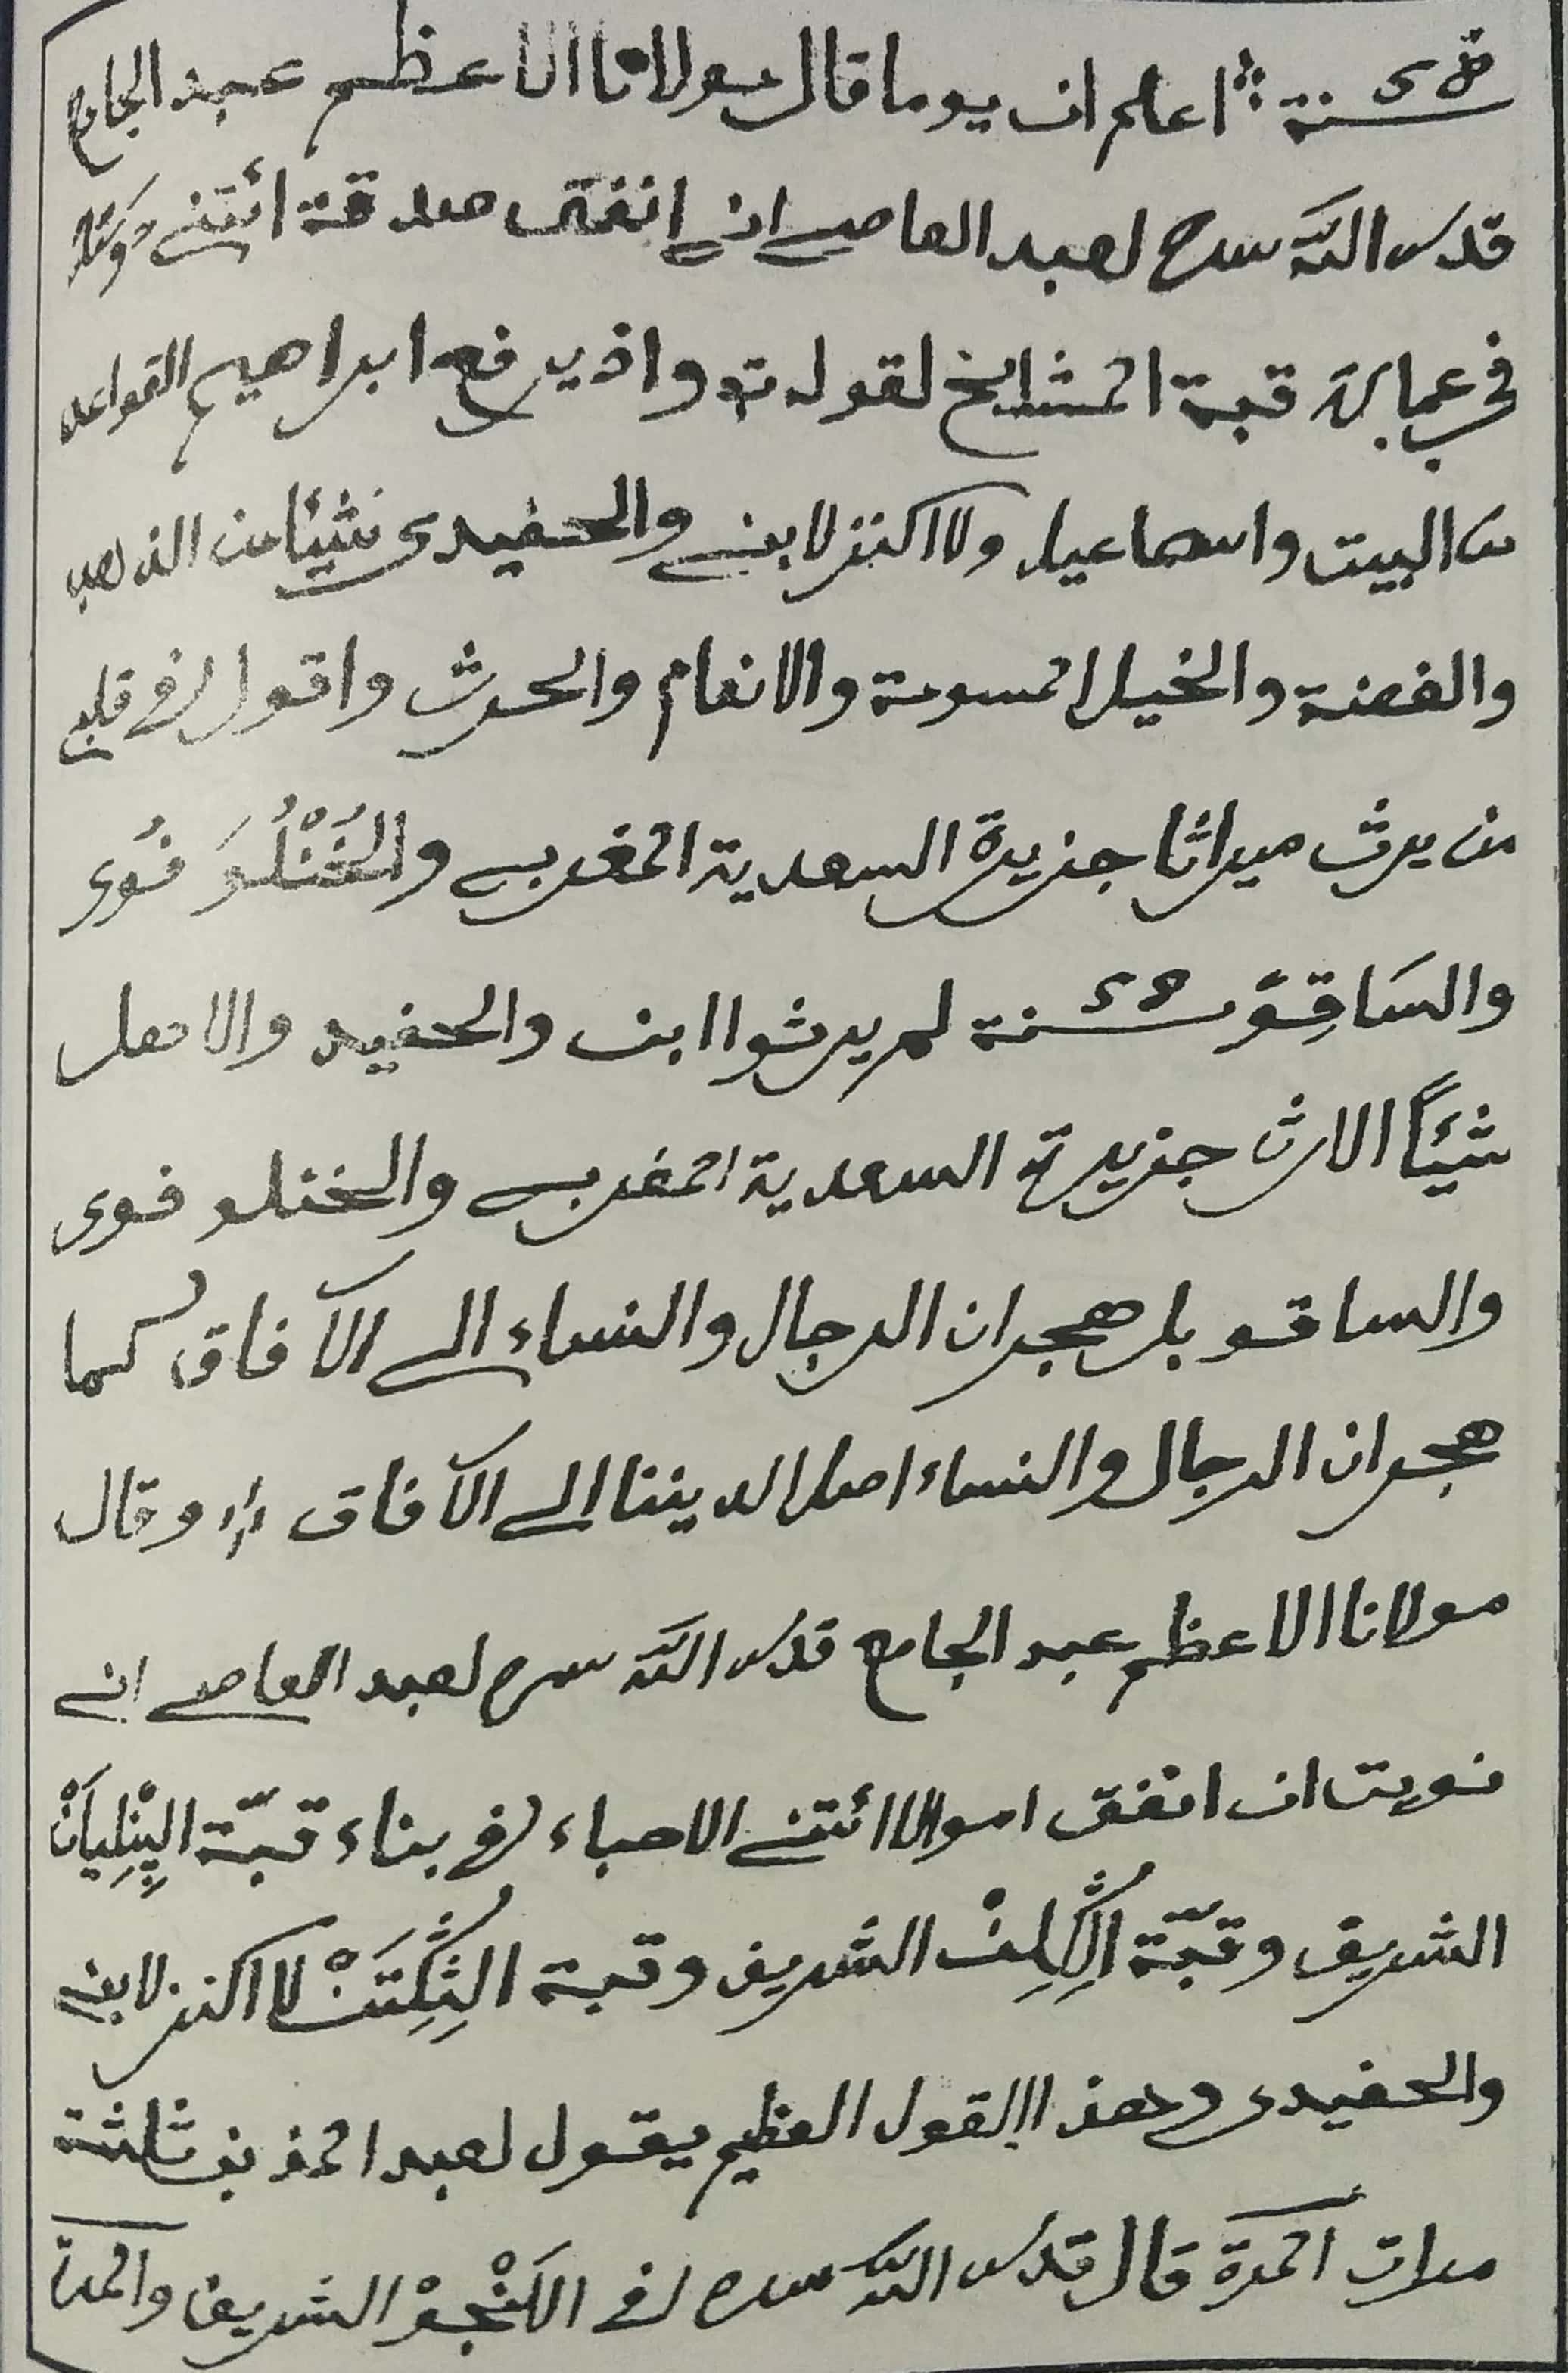 سنة اعلم ان يوما قال مولانا الاعظم عبد الجامع
قدس الله سره لعبد العاصي اني انفق صدقة ائتني
في عمارة قبة المشايخ لقوله تع واذ يرفع ابراهيم القواعد
من البيت واسماعيل ولا اكنز لابني والحفيدي شيئا من الذهب
والفضة والخيل المسومة والانعام والحرث واقول في قلبي
من يرث ميراثا جزيرة السعدية المغربي والخُنْلُوَ فُوى
والسَاقِوُ سنة لم يرثوا ابن والحفيد والاهل
شيئاً الارث جزيرة السعدية المغربي والخنلو فوى
والساقو بل هجران الرجال والنساء الى الآفاق كما
هجران الرجال والنساء اصل الديننا الى الآفاق وقال
مولانا الاعظم عبد الجامع قدس الله سره لعبد العاصي اني
نويت ان انفق اموالا ائتني الاحباء في بناء قبّة البِنْلِيَانْ
الشريف وقبّة الشريف وقبة لا اكنز لابني
والحفيدي وهذا القول العظيم يقول لعبد المذنب ثلثة
مرات المرة قال قدس الله سره في اللَنْجُوْ الشريف والمرة